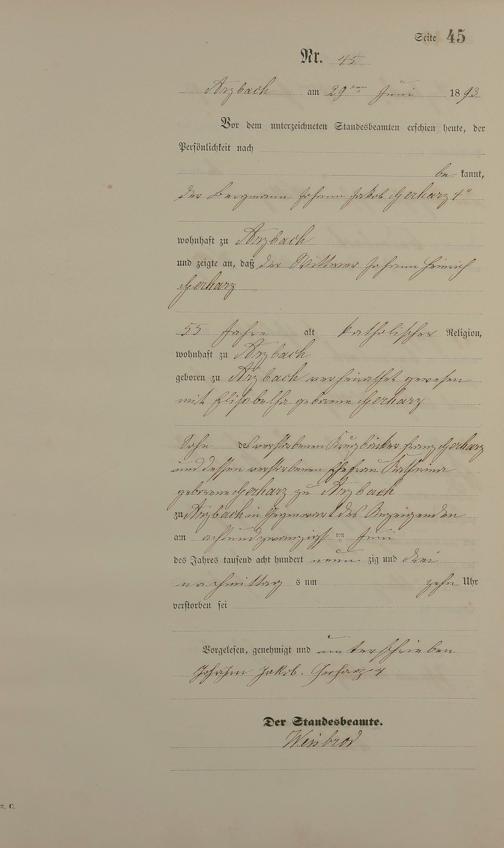 Seite 45
Nr. 45
Arzbach am 29ten Juni 1893
Vor dem unterzeichneten Standesbeamten erschien heute, der
Persönlichkeit nach
be kannt,
der Bergmann Johann Jakob Gerharz 4r
wohnhaft zu Arzbach
und zeigte an, daß der Wittwer Johann Heinrich
Gerharz
55 Jahre alt katholischer Religion,
wohnhaft zu Arzbach
geboren zu Arzbach verheirathet gewesen
mit Elisabetha geborene Gerharz
Sohn des verstorbenen Franz Gerharz
und dessen verstorbenen Ehefrau Katharina
geborene Gerharz zu Arzbach
zu Arzbach in Gegenwart des Anzeigenden
am achtundzwanzigsten Juni
des Jahres tausend acht hundert neun zig und drei
nachmittag s um zehn Uhr
verstorben sei
Vorgelesen, genehmigt und unterschrieben
Johann Jakob. Gerharz 4
Der Standesbeamte.
Weinbrod
r. C.